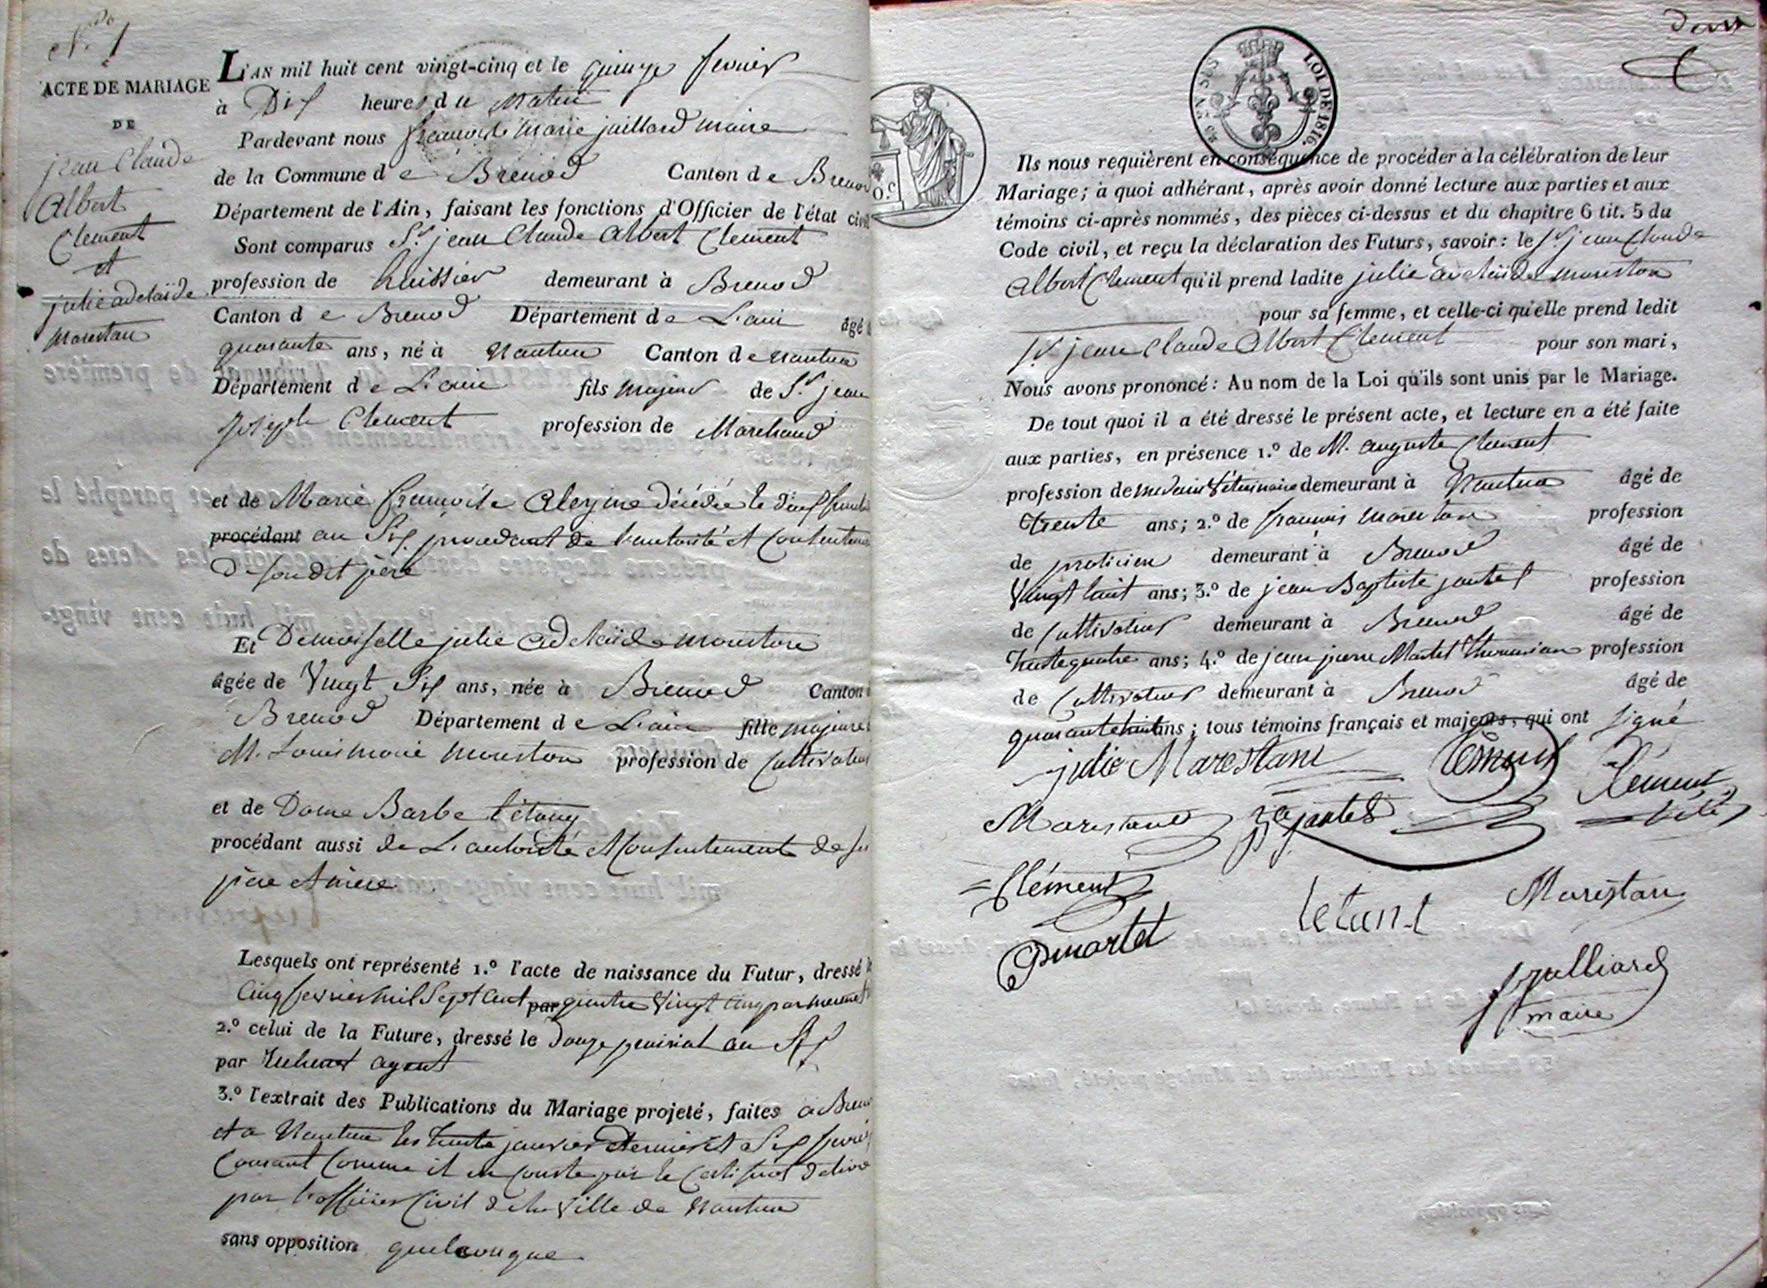 N.º 1
ACTE DE MARIAGE
DE
jean Claude
Albert
Clement
et
julie adelaïde
Morestan
L'AN mil huit cent vingt-cinq et le quinze fevrier
à Dix heures du Matin
Pardevant nous françois Marie juillard maire
de la Commune de Brenod Canton de Brenod
Département de l'Ain, faisant les fonctions d'Officier de l'état civil
Sont comparus Sr. jean Claude Albert Clement
profession de huissier demeurant à Brenod
Canton de Brenod Département de L'ain âgé
quarante ans, né à Nantua Canton de Nantua
Département de L'ain fils majeur de Sr. jean
joseph Clement profession de Marchand
et de Marie françoise Aleyme décédée le dix
procédant au Six, procedant de l'autorité et Consentement
de son dit père
Et Demoiselle julie adelaïde morestan
âgée de Vingt Six ans, née à Brenod Canton
Brenod Département de L'ain fille majeure
M. Louis marie morestan profession de Cultivateur
et de Dame Barbe létang
procédant aussi de L'autorité et Consentement de ses
père et mère
Lesquels ont représenté 1.º l'acte de naissance du Futur, dressé le
Cinq fevrier mil Sept Cent par quatre Vingt Cinq par
2.º celui de la Future, dressé le Douze prairial an Six
par agent
3.º l'extrait des Publications du Mariage projeté, faites à Brenod
et a Nantua les trente janvier dernier et Six fevrier
Courant Comme il en Conste par le Certificat délivré
par l'officier Civil de la Ville de Nantua
sans opposition quelconque
deux
LOI DE 1816
Ils nous requièrent en conséquence de procéder à la célébration de leur
Mariage; à quoi adhérant, après avoir donné lecture aux parties et aux
témoins ci-après nommés, des pièces ci-dessus et du chapitre 6 tit. 5 du
Code civil, et reçu la déclaration des Futurs, savoir: le Sr jean Claude
Albert Clement qu'il prend ladite julie adelaïde morestan
pour sa femme, et celle-ci qu'elle prend ledit
Sr. jean Claude Albert Clement pour son mari,
Nous avons prononcé: Au nom de la Loi qu'ils sont unis par le Mariage.
De tout quoi il a été dressé le présent acte, et lecture en a été faite
aux parties, en présence 1.º de M. auguste Clement
profession de medecin Vétérinaire demeurant à Nantua âgé de
trente ans; 2.º de françois morestan profession
de praticien demeurant à Brenod âgé de
Vingt huit ans; 3.º de jean Baptiste jantet profession
de Cultivateur demeurant à Brenod âgé de
trente quatre ans; 4.º de jean pierre Martet profession
de Cultivateur demeurant à Brenod âgé de
quarante huit ans; tous témoins français et majeurs, qui ont signé
julie Marestan Clément Clément
Marestand jantet
Clément
Martet letant Marestan
juilliard
maire